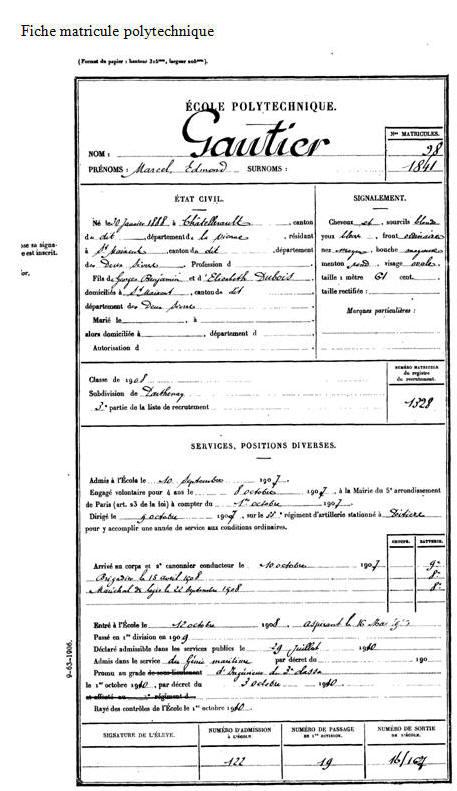 Fiche matricule polytechnique
(Format du papier : hauteur 315mm, largeur 205mm).
ÉCOLE POLYTECHNIQUE.
Gautier
Nos MATRICULES.
NOM :
98
PRÉNOMS : Marcel, Edmond SURNOMS :
1841
ÉTAT CIVIL.
SIGNALEMENT.
Né le 30 janvier 1888, à Châtellerault, canton
du dit, département de la Vienne, résidant
à St Maixent, canton du dit, département
des Deux Sèvres, Profession d
Fils de Georges Benjamin et d'Elisabeth Dubois
domiciliés à St Maixent, canton de dit
département des Deux Sèvres
Marié le , à
alors domiciliée à , département d
Autorisation d
Cheveux et sourcils blonds
yeux bleus, front ordinaire
nez moyen, bouche moyenne
menton rond, visage ovale
taille : mètre 61 cent.
taille rectifiée :
Marques particulières :
ose sa signa-
e est inscrit.
ior.
NUMÉRO MATRICULE
du registre
du recrutement.
Classe de 1908
Subdivision de Parthenay
3e partie de la liste de recrutement
1328
SERVICES, POSITIONS DIVERSES.
Admis à l'École le 10 Septembre 1907.
Engagé volontaire pour 4 ans le 8 octobre 1907, à la Mairie du 5e arrondissement
de Paris (art. 23 de la loi) à compter du 1er octobre 1907.
Dirigé le 9 octobre 1907, sur le régiment d'artillerie stationné à Poitiers
pour y accomplir une année de service aux conditions ordinaires.
GROUPE. BATTERIE.
Arrivé au corps et 2e canonnier conducteur le 10 octobre 1907 9e
Brigadier le 15 avril 1908 8e
Maréchal des logis le 22 septembre 1908 8e
Entré à l'École le 12 octobre 1908. aspirant le 16
Passé en 1re division en 1909
Déclaré admissible dans les services publics le 29 juillet 1910
Admis dans le service du Génie maritime par décret du 190
Promu au grade de sous-lieutenant d'Ingénieur de 3e classe
le 1er octobre 1910, par décret du 3 octobre 1910
et affecté au régiment d
Rayé des contrôles de l'École le 1er octobre 1910.
9-63-1906.
SIGNATURE DE L'ÉLÈVE.
NUMÉRO D'ADMISSION
À L'ÉCOLE.
NUMÉRO DE PASSAGE
EN 1re DIVISION.
NUMÉRO DE SORTIE
DE L'ÉCOLE.
122
19
16/167